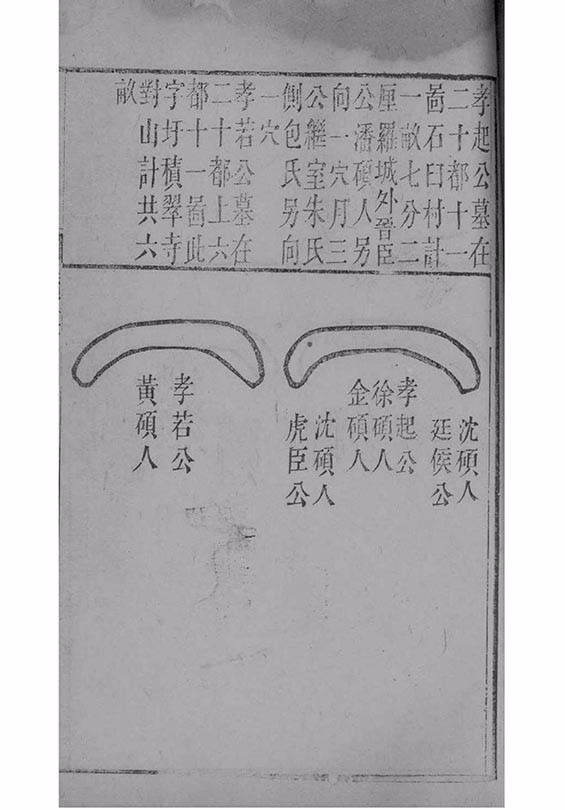 孝起公墓在
二十都十一
啚石臼村計
一畝七分二
厘羅城外晉臣
公潘碩人另
向一穴月三
公繼室朱氏
側包氏另向
一穴
孝若公墓在
二十都上六
都十一啚此
字圩積翠寺
對山計共六
畝
沈碩人
廷侯公
孝起公
徐碩人
金碩人
沈碩人
虎臣公
孝若公
黃碩人